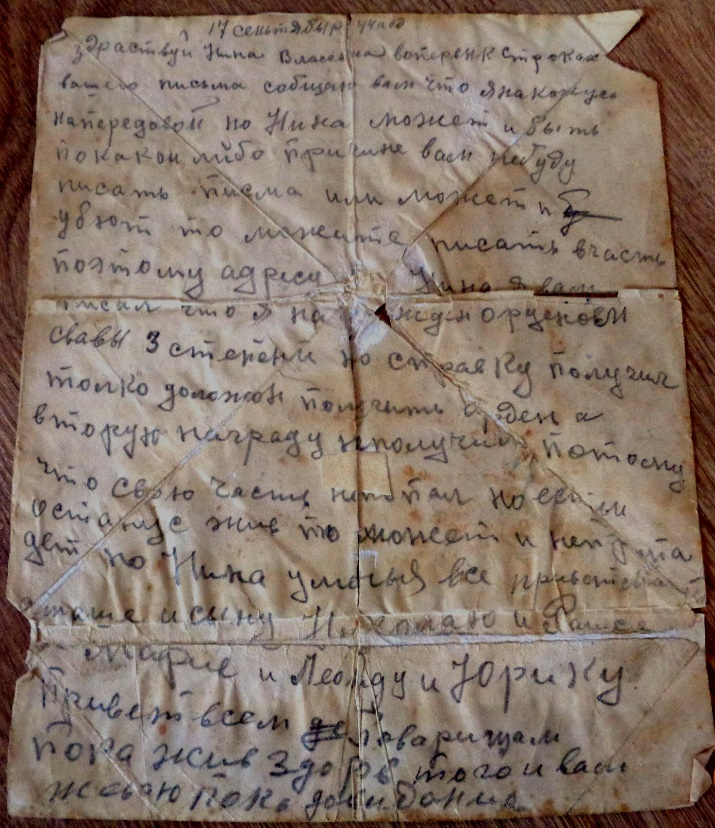 17 сеньтябыр 44 год
здраствуй Нина Власьвна воперьвых строках
вашего письма собщаю вам что я нахожусь
напередовой но Нина может и быть
покакой либо причине вам небуду
писать писма или может и
убют то можите писать вчасть
поэтому адресу Нина я вам
писал что я на жден орденом
славы 3 степени но справку получил
толко должон получить орден а
вторую награду неполучил потому
что свою часть непопал но если
останус жив то может и
дет но Нина уменья все
мамаше и сыну Николаю и Раисе
Марие и Леониду и Юрику
Привет всем товарищам
пока жив здоров того и вам
желаю пока досвидания